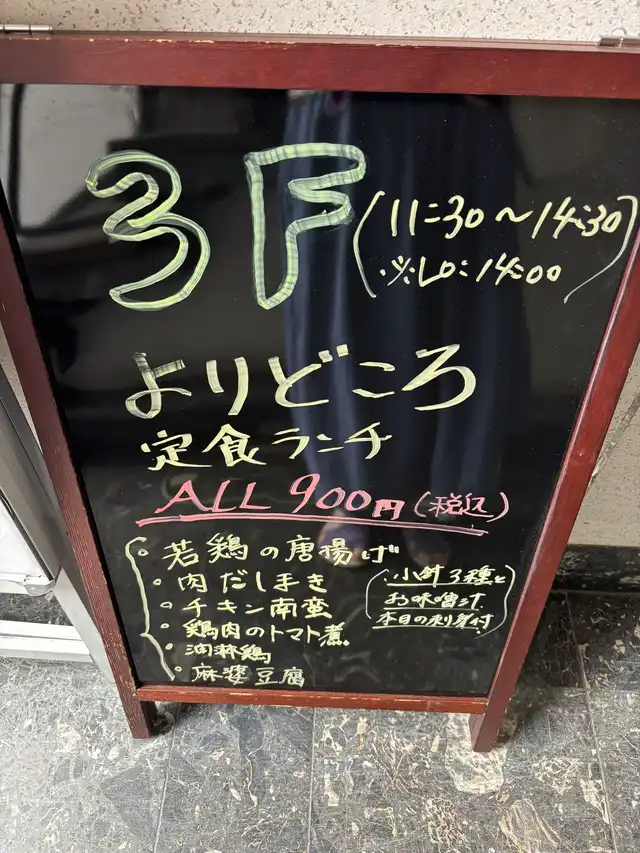 3F
(11:30～14:30)
※LO:14:00
よりどころ
定食ランチ
ALL 900円(税込)
・若鶏の唐揚げ
・肉だしまき
・チキン南蛮
・鶏肉のトマト煮
・油淋鶏
・麻婆豆腐
(小鉢3種と
お味噌汁
本日のお刺身付)